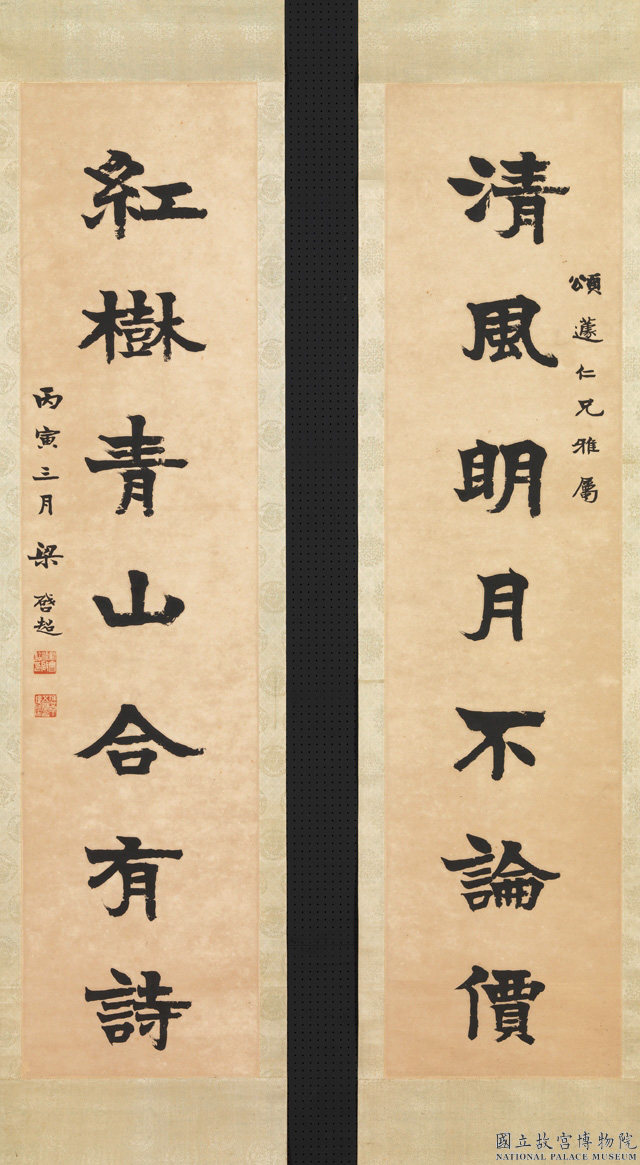 清風明月不論價
頌蘧仁兄雅屬
紅樹青山合有詩
丙寅三月梁啓超
國立故宮博物院
NATIONAL PALACE MUSEUM